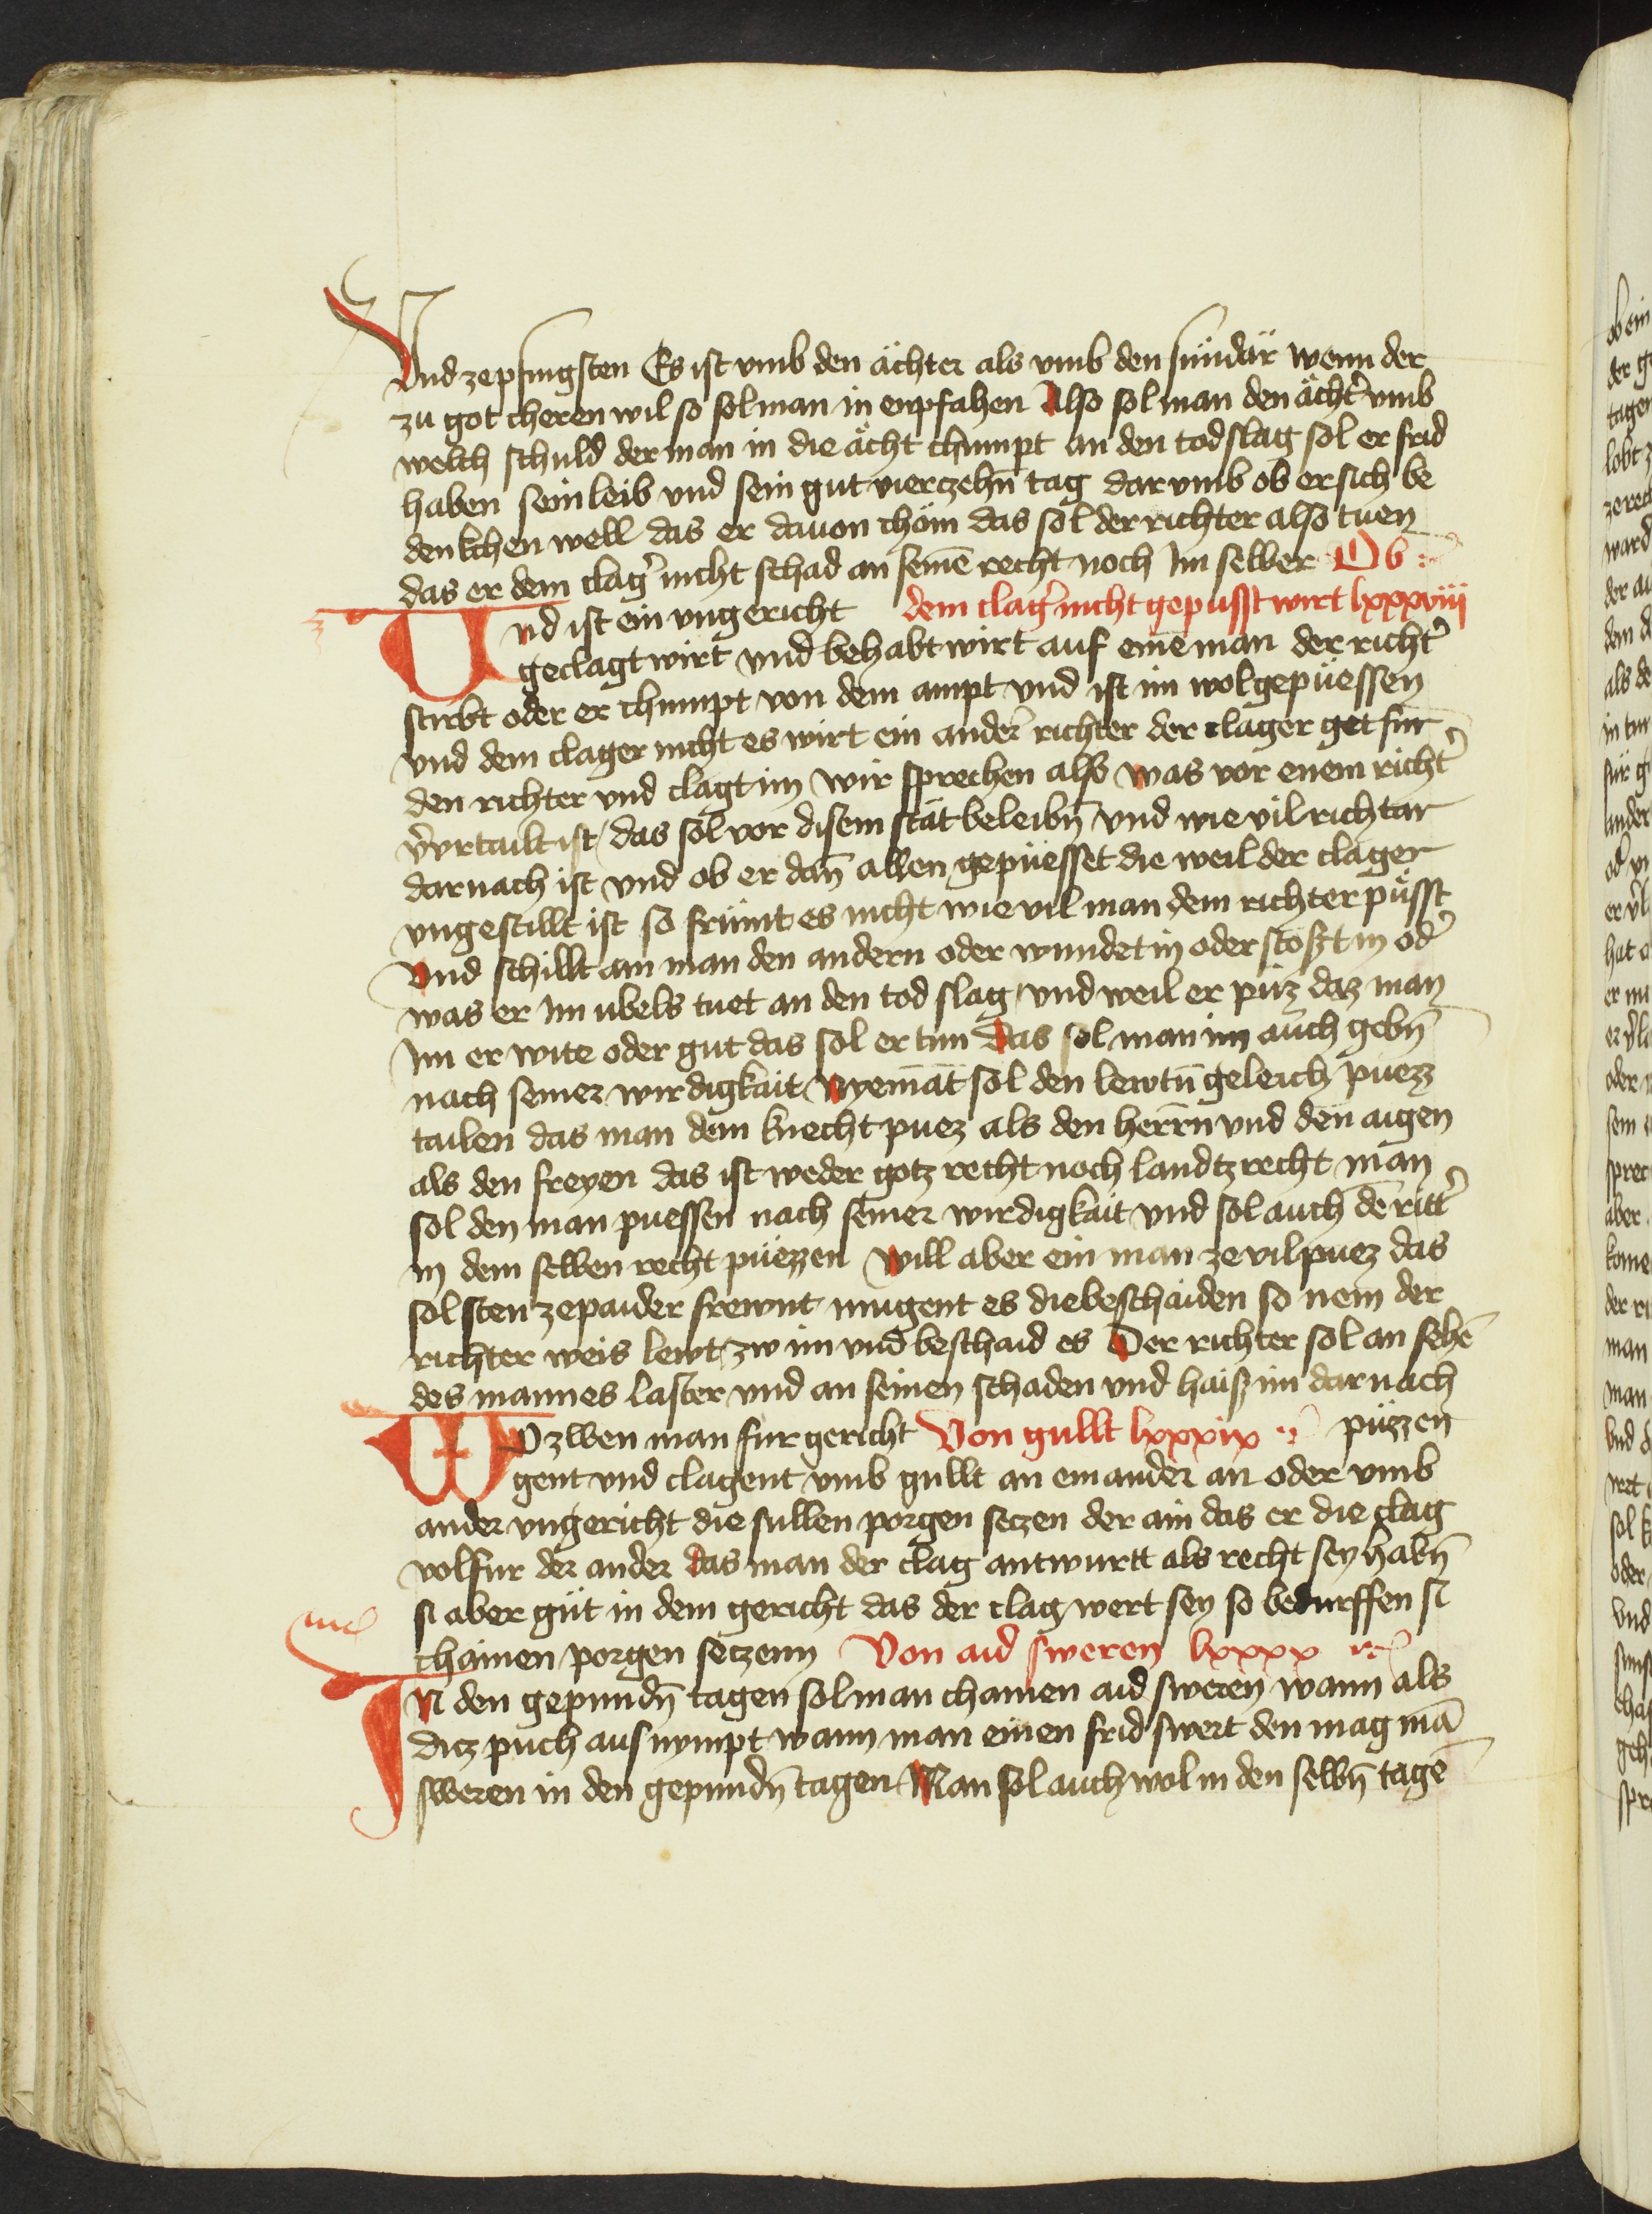 Vnd ze pfingsten Es ist vmb den ächter als vmb den sündär wenn der
zu got cheren wil so sol man in enpfahen Also sol man den ächt̾ vmb
welch schuld der man in die ächt chumpt an den todslag sol er frid
haben sein leib vnd sein gut vierzehn̄ tag dar vmb ob er sich be
denkchen well das er dauon chöm das sol der richter also tuen
das er dem clag̾ nicht schad an seinē recht noch Im selber Ob
Vnd ist ein vngericht dem clag̾ nicht gepusst wirt lxxxviii
geclagt wirt vnd behabt wirt auf einē man der richt̾
stirbt oder er chumpt von dem ampt vnd ist im wol gepüessen
vnd dem clager nicht es wirt ein ander̾ richter der clager get für
den richter vnd clagt im wir sprechen also was vor enem richt̾
v̾vrtailt ist das sol vor disem stät beleibn̄ vnd wie vil richtar
darnach ist vnd ob er dan̄ allen gepüesset die weil der clager
vngestillt ist so frümt es nicht wie vil man dem richter püsst
Vnd schillt ain man den andern oder wundet in oder stoßt in od̾
was er Im ubels tuet an den tod slag vnd weil er püz daz man
Im er wite oder gut das sol er tun Das sol man im auch gebn̄
nach seiner wirdigkait Nyemāt sol den lewtn̄ geleich puezz
tailen das man dem knecht puez als den herrn̄ vnd den aigen
als den freyen das ist weder gotz recht noch landtzrecht man
sol den man puessen nach seiner wirdigkait vnd sol auch dē ritt̾
in dem selben recht püezzen will aber ein man ze vil puez das
sol sten ze paider frewnt mugent es die beschaiden so nem der
richter weis lewt zw im vnd beschaid es Der richter sol an sehē
des mannes laster vnd an seinen schaden vnd haiß im dar nach
WO zwen man fur gericht Von gullt lxxxix püzzen
gent vnd clagent vmb gullt an einander an oder vmb
ander vngericht die sullen porgen setzen der ain das er die clag
volfur der ander das man der clag antwurtt als recht sey habn̄
si aber güt in dem gericht das der clag wert sey so bedurffen si
chainen porgen setzenn Von aid sweren lxxxx
IN den gepundn̄ tagen sol man chainen aid sweren wann als
ditz puch aus nympt wann man einen frid swert den mag mā
sweren in den gepundn̄ tagen Man sol auch wol in den selbn̄ tagē